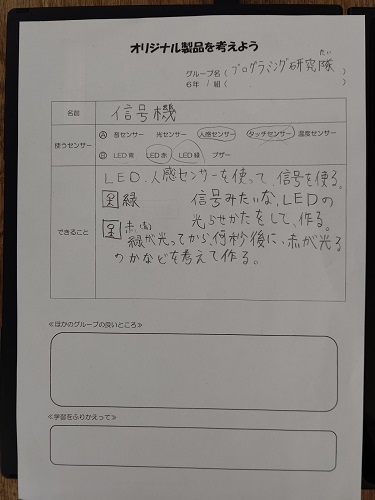 オリジナル製品を考えよう
グループ名（プログラミング研究隊
たい
6年 1組（
名前
信号機
使うセンサー
Ⓐ 音センサー 光センサー 人感センサー タッチセンサー 温度センサー
LED 青 LED 赤 LED 緑 ブザー
できること
LED、人感センサーを使って、信号を使る。
緑 信号みたいな、LEDの
赤 光らせかたをして、作る。
緑が光ってから、何秒後に、赤が光る
のかなどを考えて作る。
≪ほかのグループの良いところ≫
≪学習をふりかえって≫